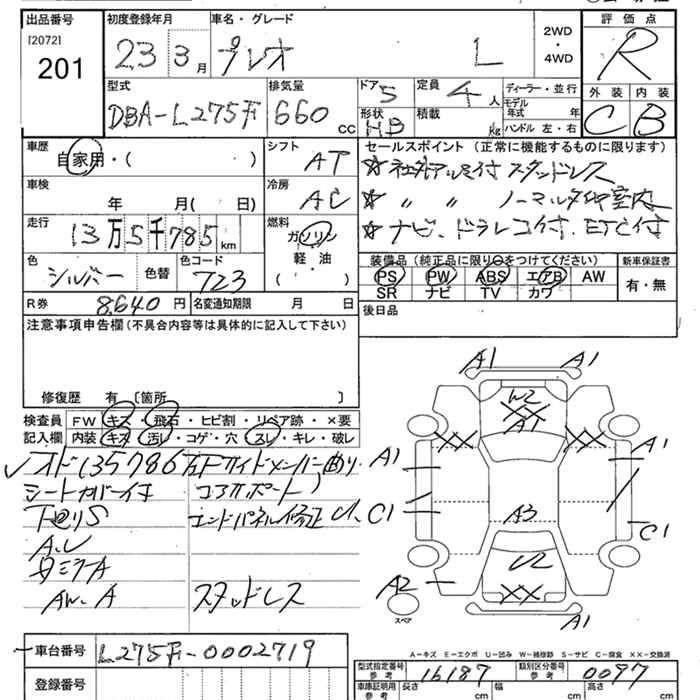 出品番号 初度登録年月 車名・グレード 2WD・4WD 評価点
[2072]
201 23 3月 プレオ L R
型式 排気量 ドア 5 定員 4人 ディーラー・並行 外装 内装
DBA-L275F 660cc 形状 HB 積載 kg モデル年式 年 C B
ハンドル 左・右
車歴 シフト セールスポイント(正常に機能するものに限ります)
自家用・( ) AT ☆社外アルミ付スタッドレス
車検 冷房 ☆ 〃 〃 ノーマルタイヤ室内
年 月( 日) AC ☆ナビ、ドラレコ付、ETC付
走行 燃料
13万5千785km ガソリン
軽・油
( )
色 色替 色コード 装備品(純正品に限り○をつけてください) 新車保証書
シルバー 723 PS PW ABS エアB AW 有・無
SR ナビ TV カワ
R券 8,640円 名変通知期限 月 日 後日品
注意事項申告欄(不具合内容等は具体的に記入して下さい)
修復歴 有 〔箇所 〕
検査員 FW キズ・飛石・ヒビ割・リペア跡・×要
記入欄 内装 キズ・汚レ・コゲ・穴・スレ・キレ・破レ
オド135786 サイドメンバー曲り
シートカバー付 コアサポート
下廻りS エンドパネル修正
A.U
母ミラA
AW.A スタッドレス
A1 A1
W2
XX
A1
XX XX
A1 A1
C1 A3 C1
U2
A2 XX
スペア A1
A-キズ E-エクボ U-凹み W-補修跡 S-サビ C-腐食 XX-交換済
車台番号 L275F-0002719
登録番号
型式指定番号 参考 16187 類別区分番号 参考 0097
車庫証明用 参考 長さ cm 幅 cm 高さ cm